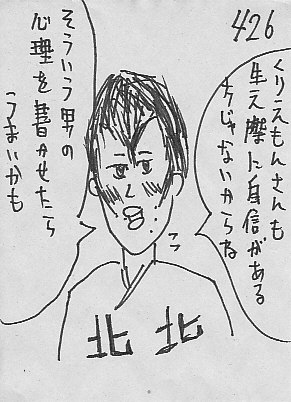 426
くりえもんさんも
生え際に自信がある
ちじゃないからね
そういう男の
心理を書かせたら
うまいかも
フフ
北 北